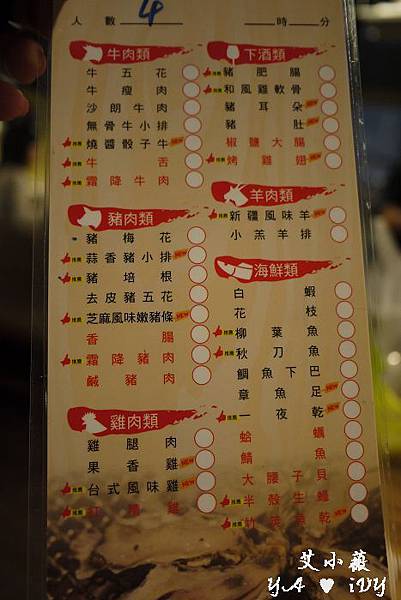 人數 4 時 分
牛肉類
牛五花
牛瘦肉
沙朗牛肉
無骨牛小排
推薦 燒醬骰子牛 NEW
推薦 牛舌
推薦 霜降牛肉
豬肉類
豬梅花
推薦 蒜香豬小排 NEW
推薦 豬培根
去皮豬五花
推薦 芝麻風味嫩豬條 NEW
香腸
推薦 霜降豬肉
鹹豬肉
雞肉類
雞腿肉
果香雞 NEW
推薦 台式風味雞 NEW
推薦
下酒類
推薦 豬肥腸
推薦 和風雞軟骨
豬耳朵
豬肚 NEW
椒鹽大腸
推薦 烤雞翅 NEW
羊肉類
推薦 新疆風味羊 NEW
小羔羊排
海鮮類
白蝦
花枝
推薦 柳葉魚
推薦 秋刀魚
鯛魚下巴
章魚足 NEW
推薦 一夜乾 NEW
蛤蠣
鯖魚
大腰子貝
推薦 半殼生蠔 NEW
推薦 竹筴魚乾 NEW
艾小薇
YA ♥ iVY